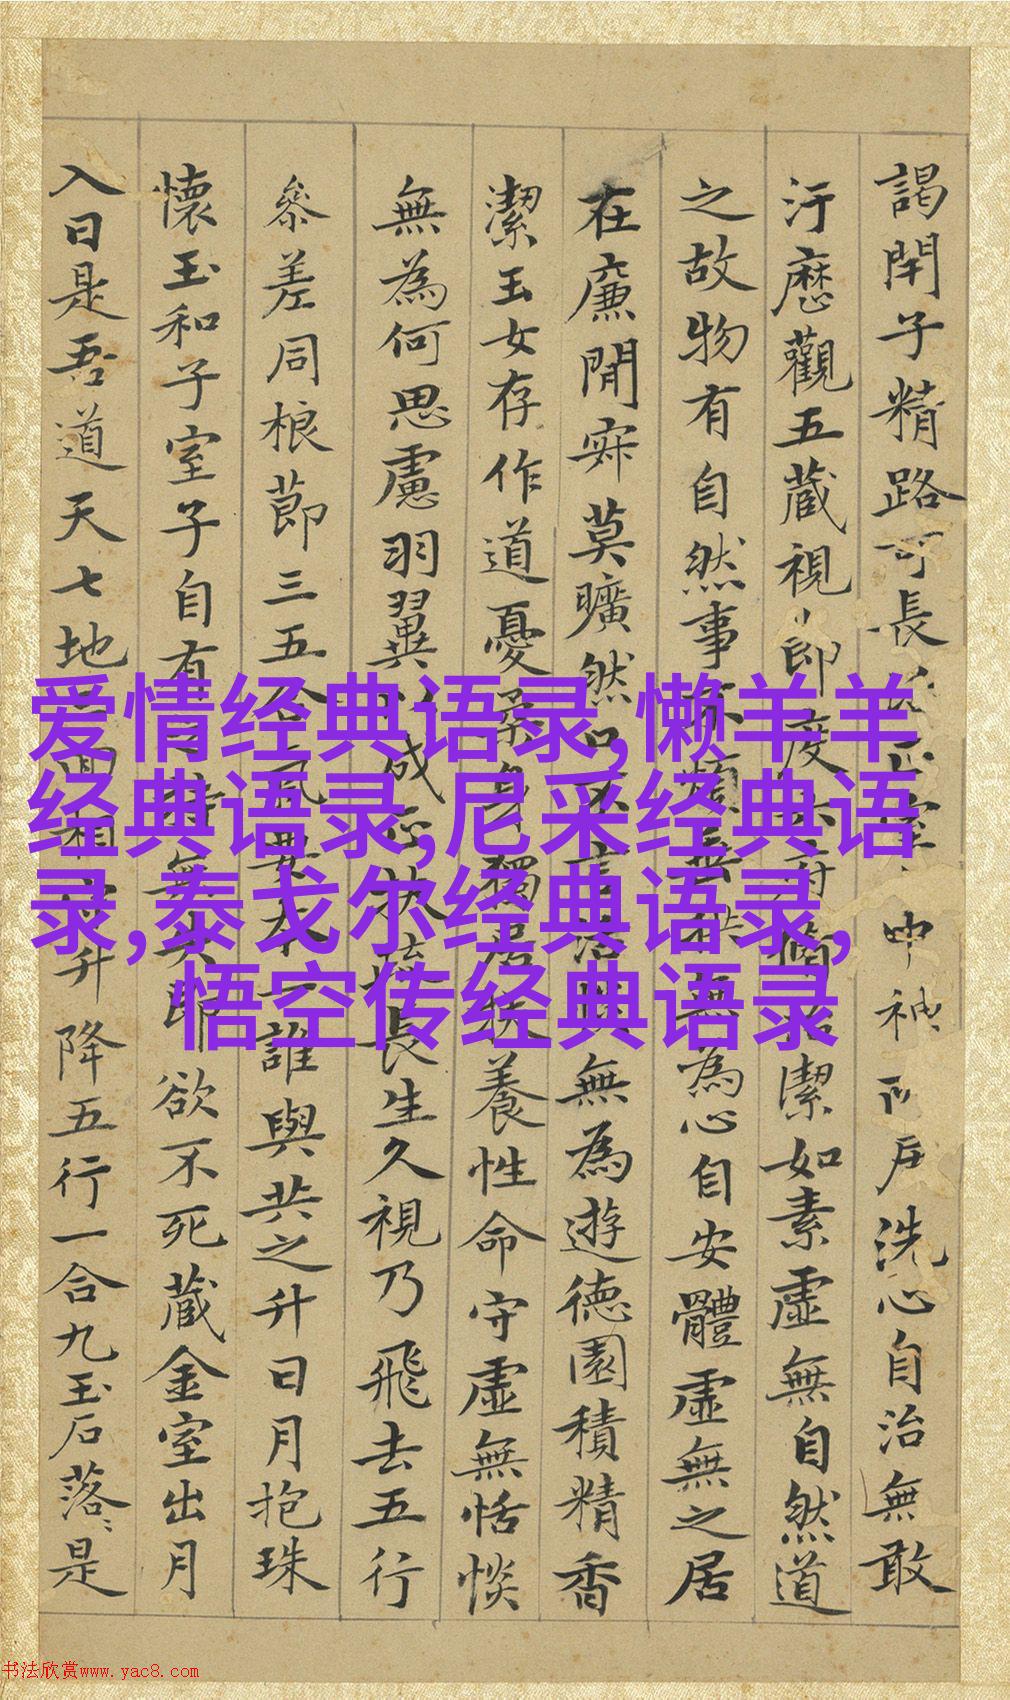 謁閇子精路可長
中神
戶洗心自治無敢
汙歷觀五藏視
節度
潔如素虛無自然道
之故物有自然事
無為心自安體虛無之居
在廉閒寂莫曠然
無為遊德園積精香
潔玉女存作道憂
身獨居扶養性命守虛無恬惔
無為何思慮羽翼
成正扶
長生久視乃飛去五行
參差同根節三五
本一誰與共之升日月抱珠
懷玉和子室子自有
無失即欲不死藏金室出月
入日是吾道天七地
升降五行一合九玉石落〻是
爱情经典语录,懒羊羊
经典语录,尼采经典语
录,泰戈尔经典语录,
悟空传经典语录
书法欣赏www.yac8.com